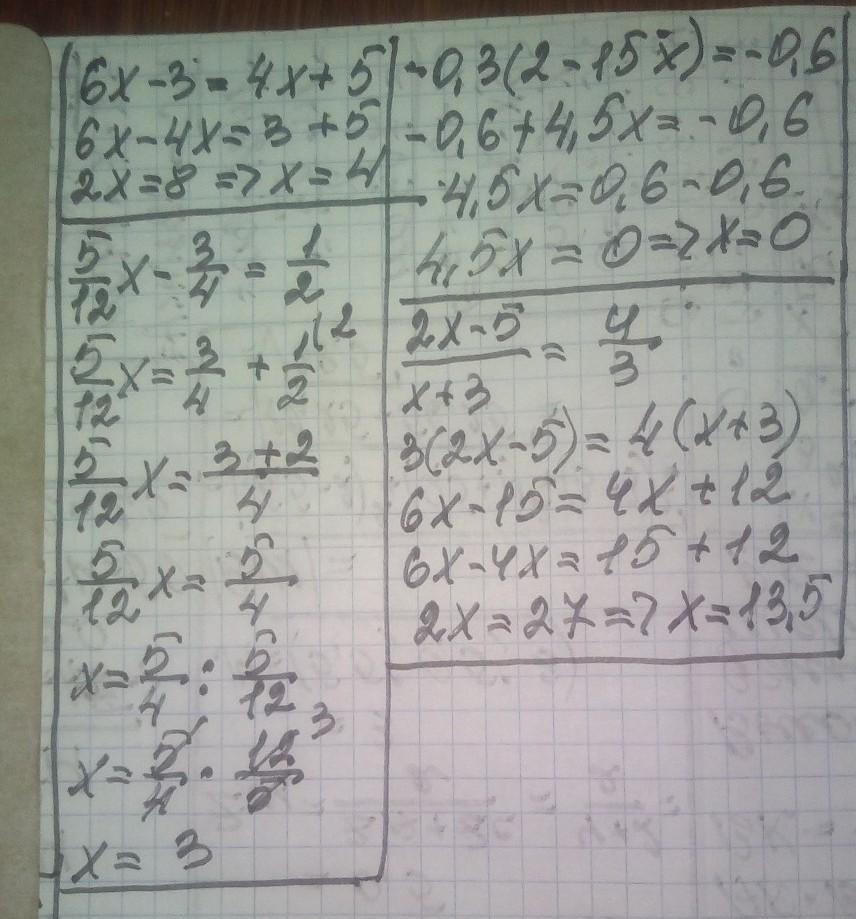 6x-3=4x+5
6x-4x=3+5
2x=8=>x=4
5/12 x - 3/4 = 1/2
5/12 x = 3/4 + 1/2 (2
5/12 x = 3+2/4
5/12 x = 5/4
x = 5/4 : 5/12
x = 5/4 · 12/5 3
x = 3
-0,3(2-15x)=-0,6
-0,6+4,5x=-0,6
4,5x=0,6-0,6
4,5x=0=>x=0
2x-5/x+3 = 4/3
3(2x-5)=4(x+3)
6x-15=4x+12
6x-4x=15+12
2x=27=>x=13,5